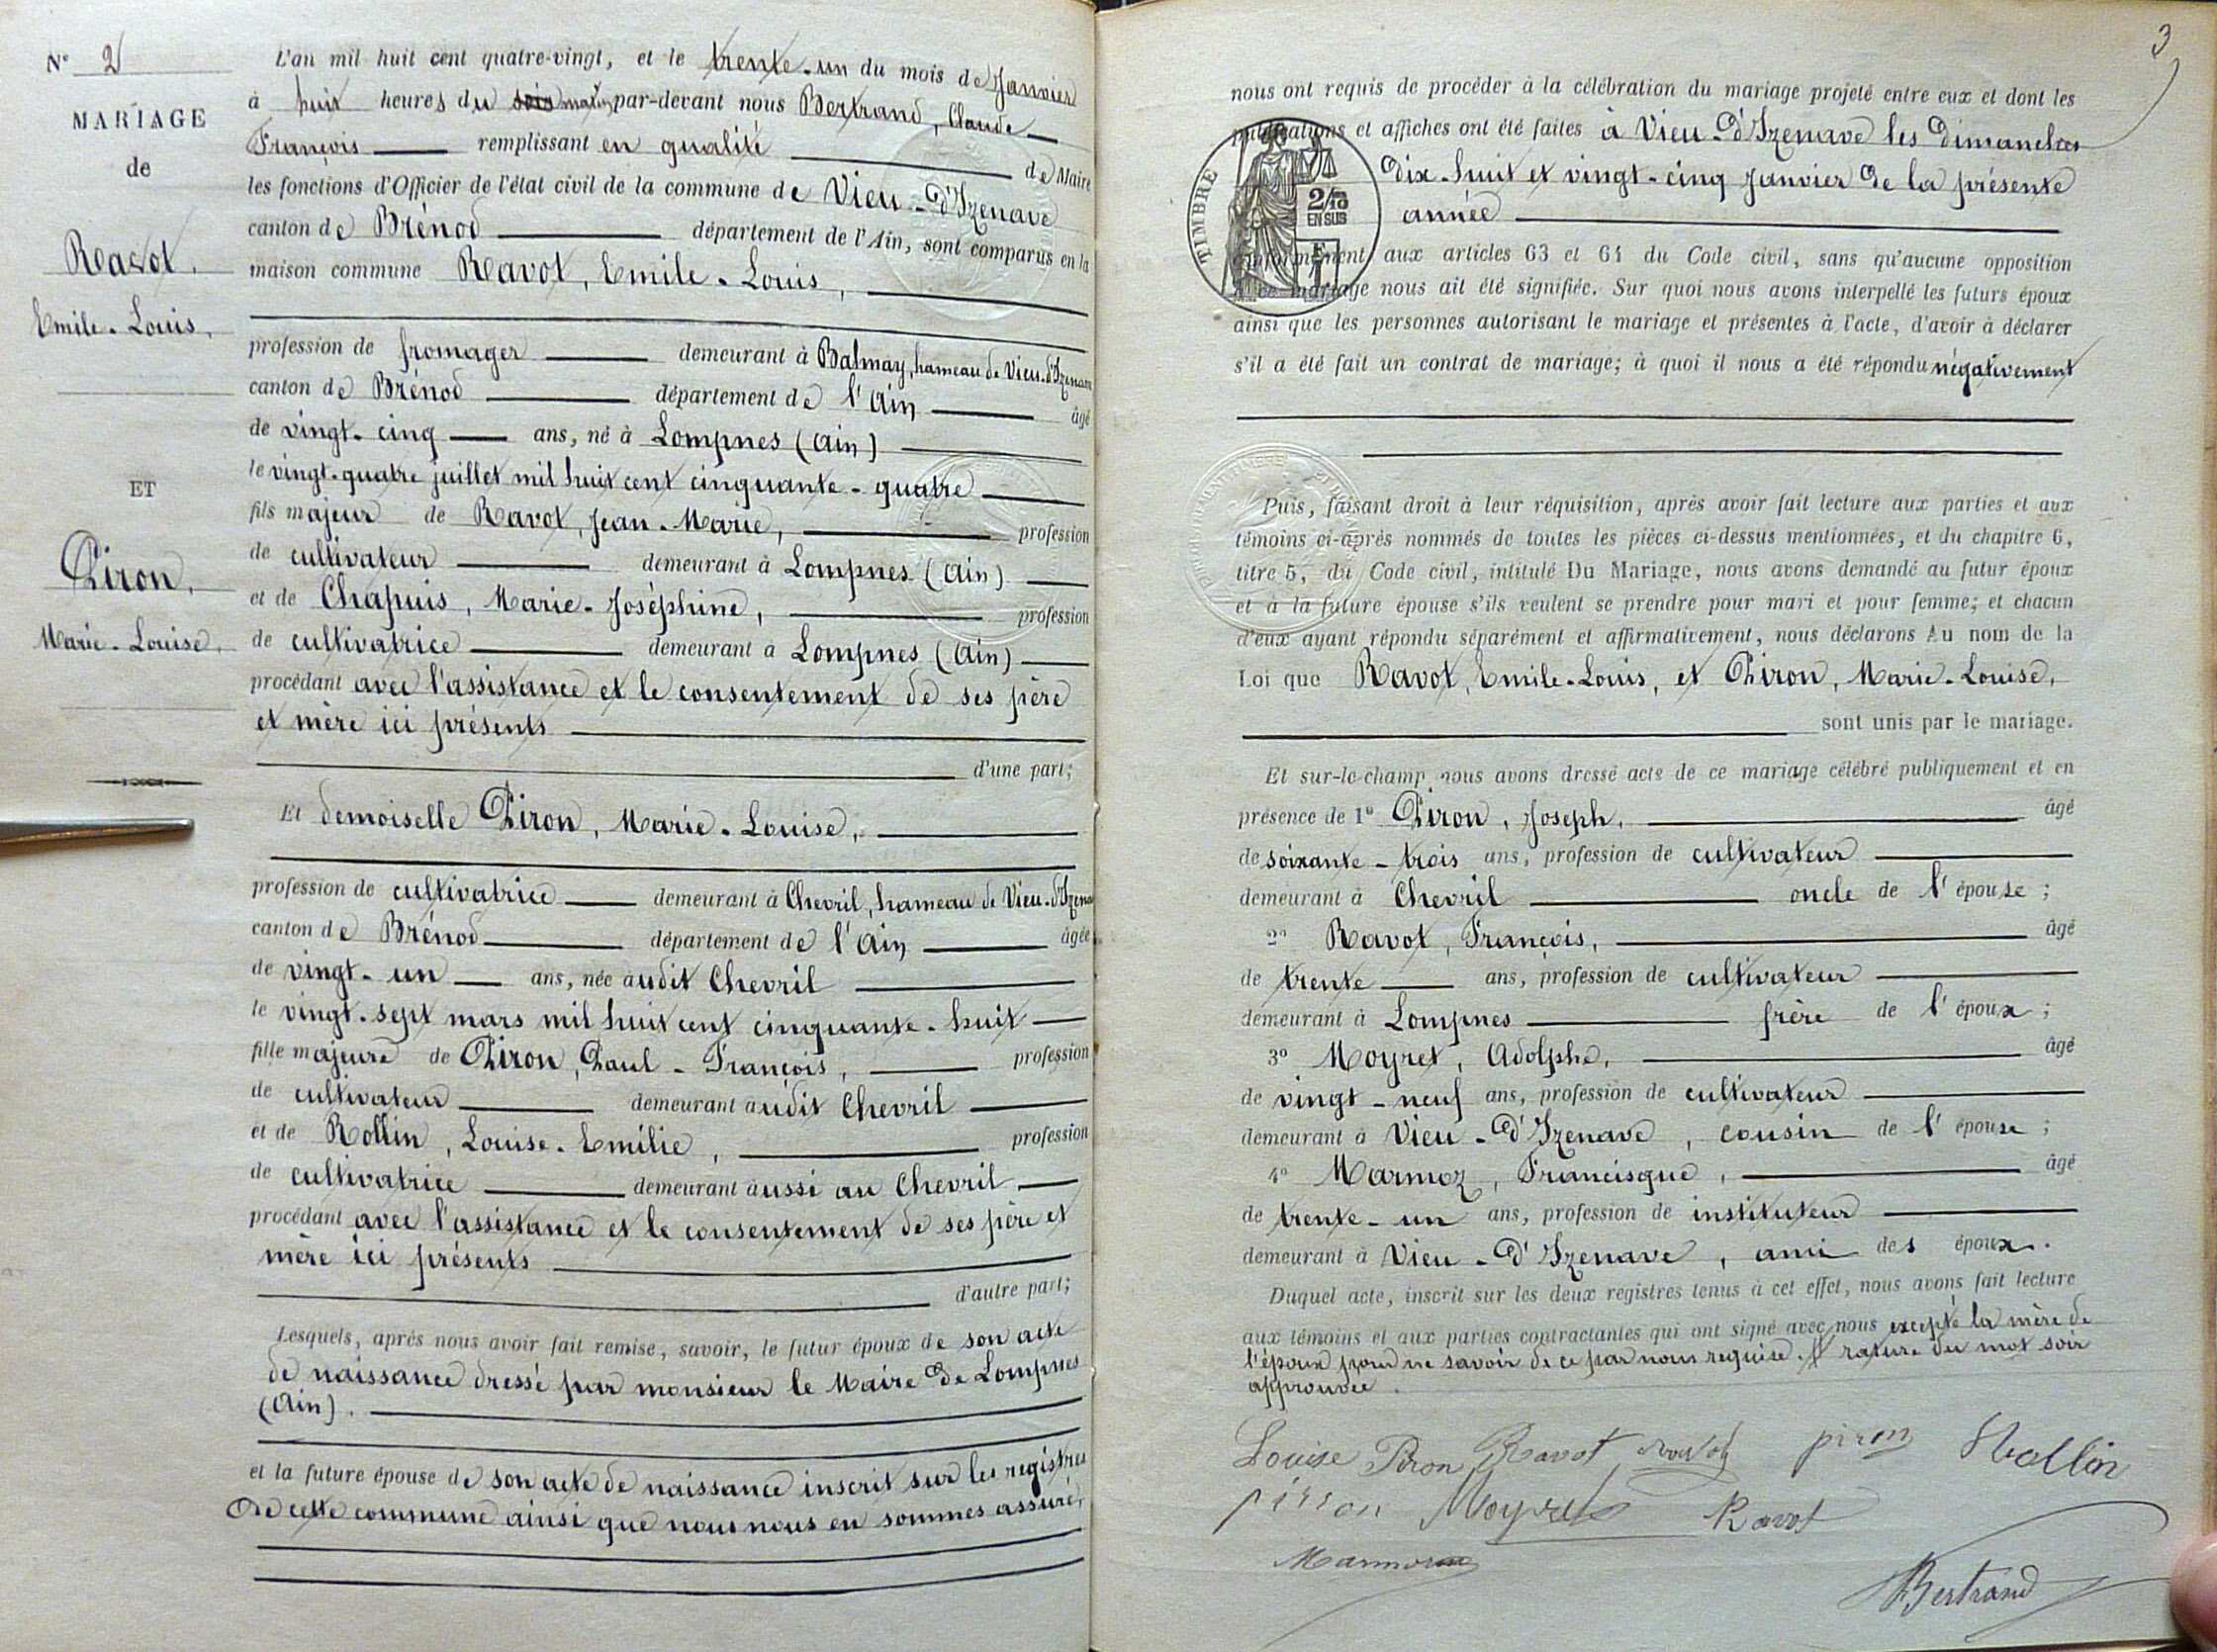 N° 2
MARIAGE
de
Ravot,
Emile-Louis,
ET
Piron,
Marie-Louise,
L'an mil huit cent quatre-vingt, et le trente-un du mois de Janvier
à huit heures du soir matin, par-devant nous Bertrand, Claude
François remplissant en qualité de Maire
les fonctions d'Officier de l'état civil de la commune de Vieu-d'Izenave
canton de Brénod département de l'Ain, sont comparus en la
maison commune Ravot, Emile-Louis,
profession de fromager demeurant à Balmay, hameau de Vieu-d'Izenave
canton de Brénod département de l'Ain âgé
de vingt-cinq ans, né à Lompnes (Ain)
le vingt-quatre juillet mil huit cent cinquante-quatre
fils majeur de Ravot, Jean-Marie, profession
de cultivateur demeurant à Lompnes (Ain)
et de Chapuis, Marie-Joséphine, profession
de cultivatrice demeurant à Lompnes (Ain)
procédant avec l'assistance et le consentement de ses père
et mère ici présents
d'une part;
Et demoiselle Piron, Marie-Louise,
profession de cultivatrice demeurant à Chevril, hameau de Vieu-d'Izena
canton de Brénod département de l'Ain âgée
de vingt-un ans, née audit Chevril
le vingt-sept mars mil huit cent cinquante-huit
fille majeure de Piron, Paul-François, profession
de cultivateur demeurant audit Chevril
et de Rollin, Louise-Emilie, profession
de cultivatrice demeurant aussi au Chevril
procédant avec l'assistance et le consentement de ses père et
mère ici présents
d'autre part;
Lesquels, après nous avoir fait remise, savoir, le futur époux de son acte
de naissance dressé par monsieur le Maire de Lompnes
(Ain).
et la future épouse de son acte de naissance inscrit sur les registres
de cette commune ainsi que nous nous en sommes assuré,
3
nous ont requis de procéder à la célébration du mariage projeté entre eux et dont les
publications et affiches ont été faites à Vieu-d'Izenave les dimanches
dix-huit et vingt-cinq janvier de la présente
année
TIMBRE
2/10
EN SUS
conformément aux articles 63 et 64 du Code civil, sans qu'aucune opposition
à ce mariage nous ait été signifiée. Sur quoi nous avons interpellé les futurs époux
ainsi que les personnes autorisant le mariage et présentes à l'acte, d'avoir à déclarer
s'il a été fait un contrat de mariage; à quoi il nous a été répondu négativement
Puis, faisant droit à leur réquisition, après avoir fait lecture aux parties et aux
témoins ci-après nommés de toutes les pièces ci-dessus mentionnées, et du chapitre 6,
titre 5, du Code civil, intitulé Du Mariage, nous avons demandé au futur époux
et à la future épouse s'ils veulent se prendre pour mari et pour femme; et chacun
d'eux ayant répondu séparément et affirmativement, nous déclarons Au nom de la
Loi que Ravot, Emile-Louis, et Piron, Marie-Louise,
sont unis par le mariage.
Et sur-le-champ nous avons dressé acte de ce mariage célébré publiquement et en
présence de 1° Piron, Joseph, âgé
de soixante-trois ans, profession de cultivateur
demeurant à Chevril oncle de l'épouse;
2° Ravot, François, âgé
de trente ans, profession de cultivateur
demeurant à Lompnes frère de l'époux;
3° Moyret, Adolphe, âgé
de vingt-neuf ans, profession de cultivateur
demeurant à Vieu-d'Izenave, cousin de l'épouse;
4° Marmoz, Francisque, âgé
de trente-un ans, profession de instituteur
demeurant à Vieu-d'Izenave, ami des époux.
Duquel acte, inscrit sur les deux registres tenus à cet effet, nous avons fait lecture
aux témoins et aux parties contractantes qui ont signé avec nous excepté la mère de
l'époux pour ne savoir de ce par nous requise. rature du mot soir
approuvée.
Louise Piron Ravot Ravot piron Rollin
piron Moyret Ravot
Marmoz
Bertrand